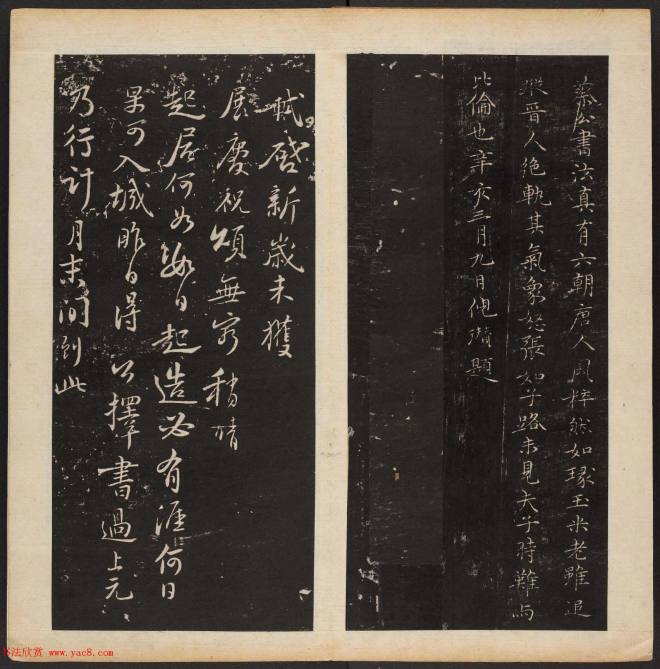 蔡公書法真有六朝唐人風粹然如琢玉米老雖追
蹤晋人絶軌其氣象怒張如子路未見夫子時難與
比倫也辛亥三月九日倪瓚題
軾啓新歲未獲
展慶祝頌無窮稍晴
起居何如數日起造必有涯何日
果可入城昨日得公擇書過上元
乃行計月末間到此
书法欣赏 www.yac8.com